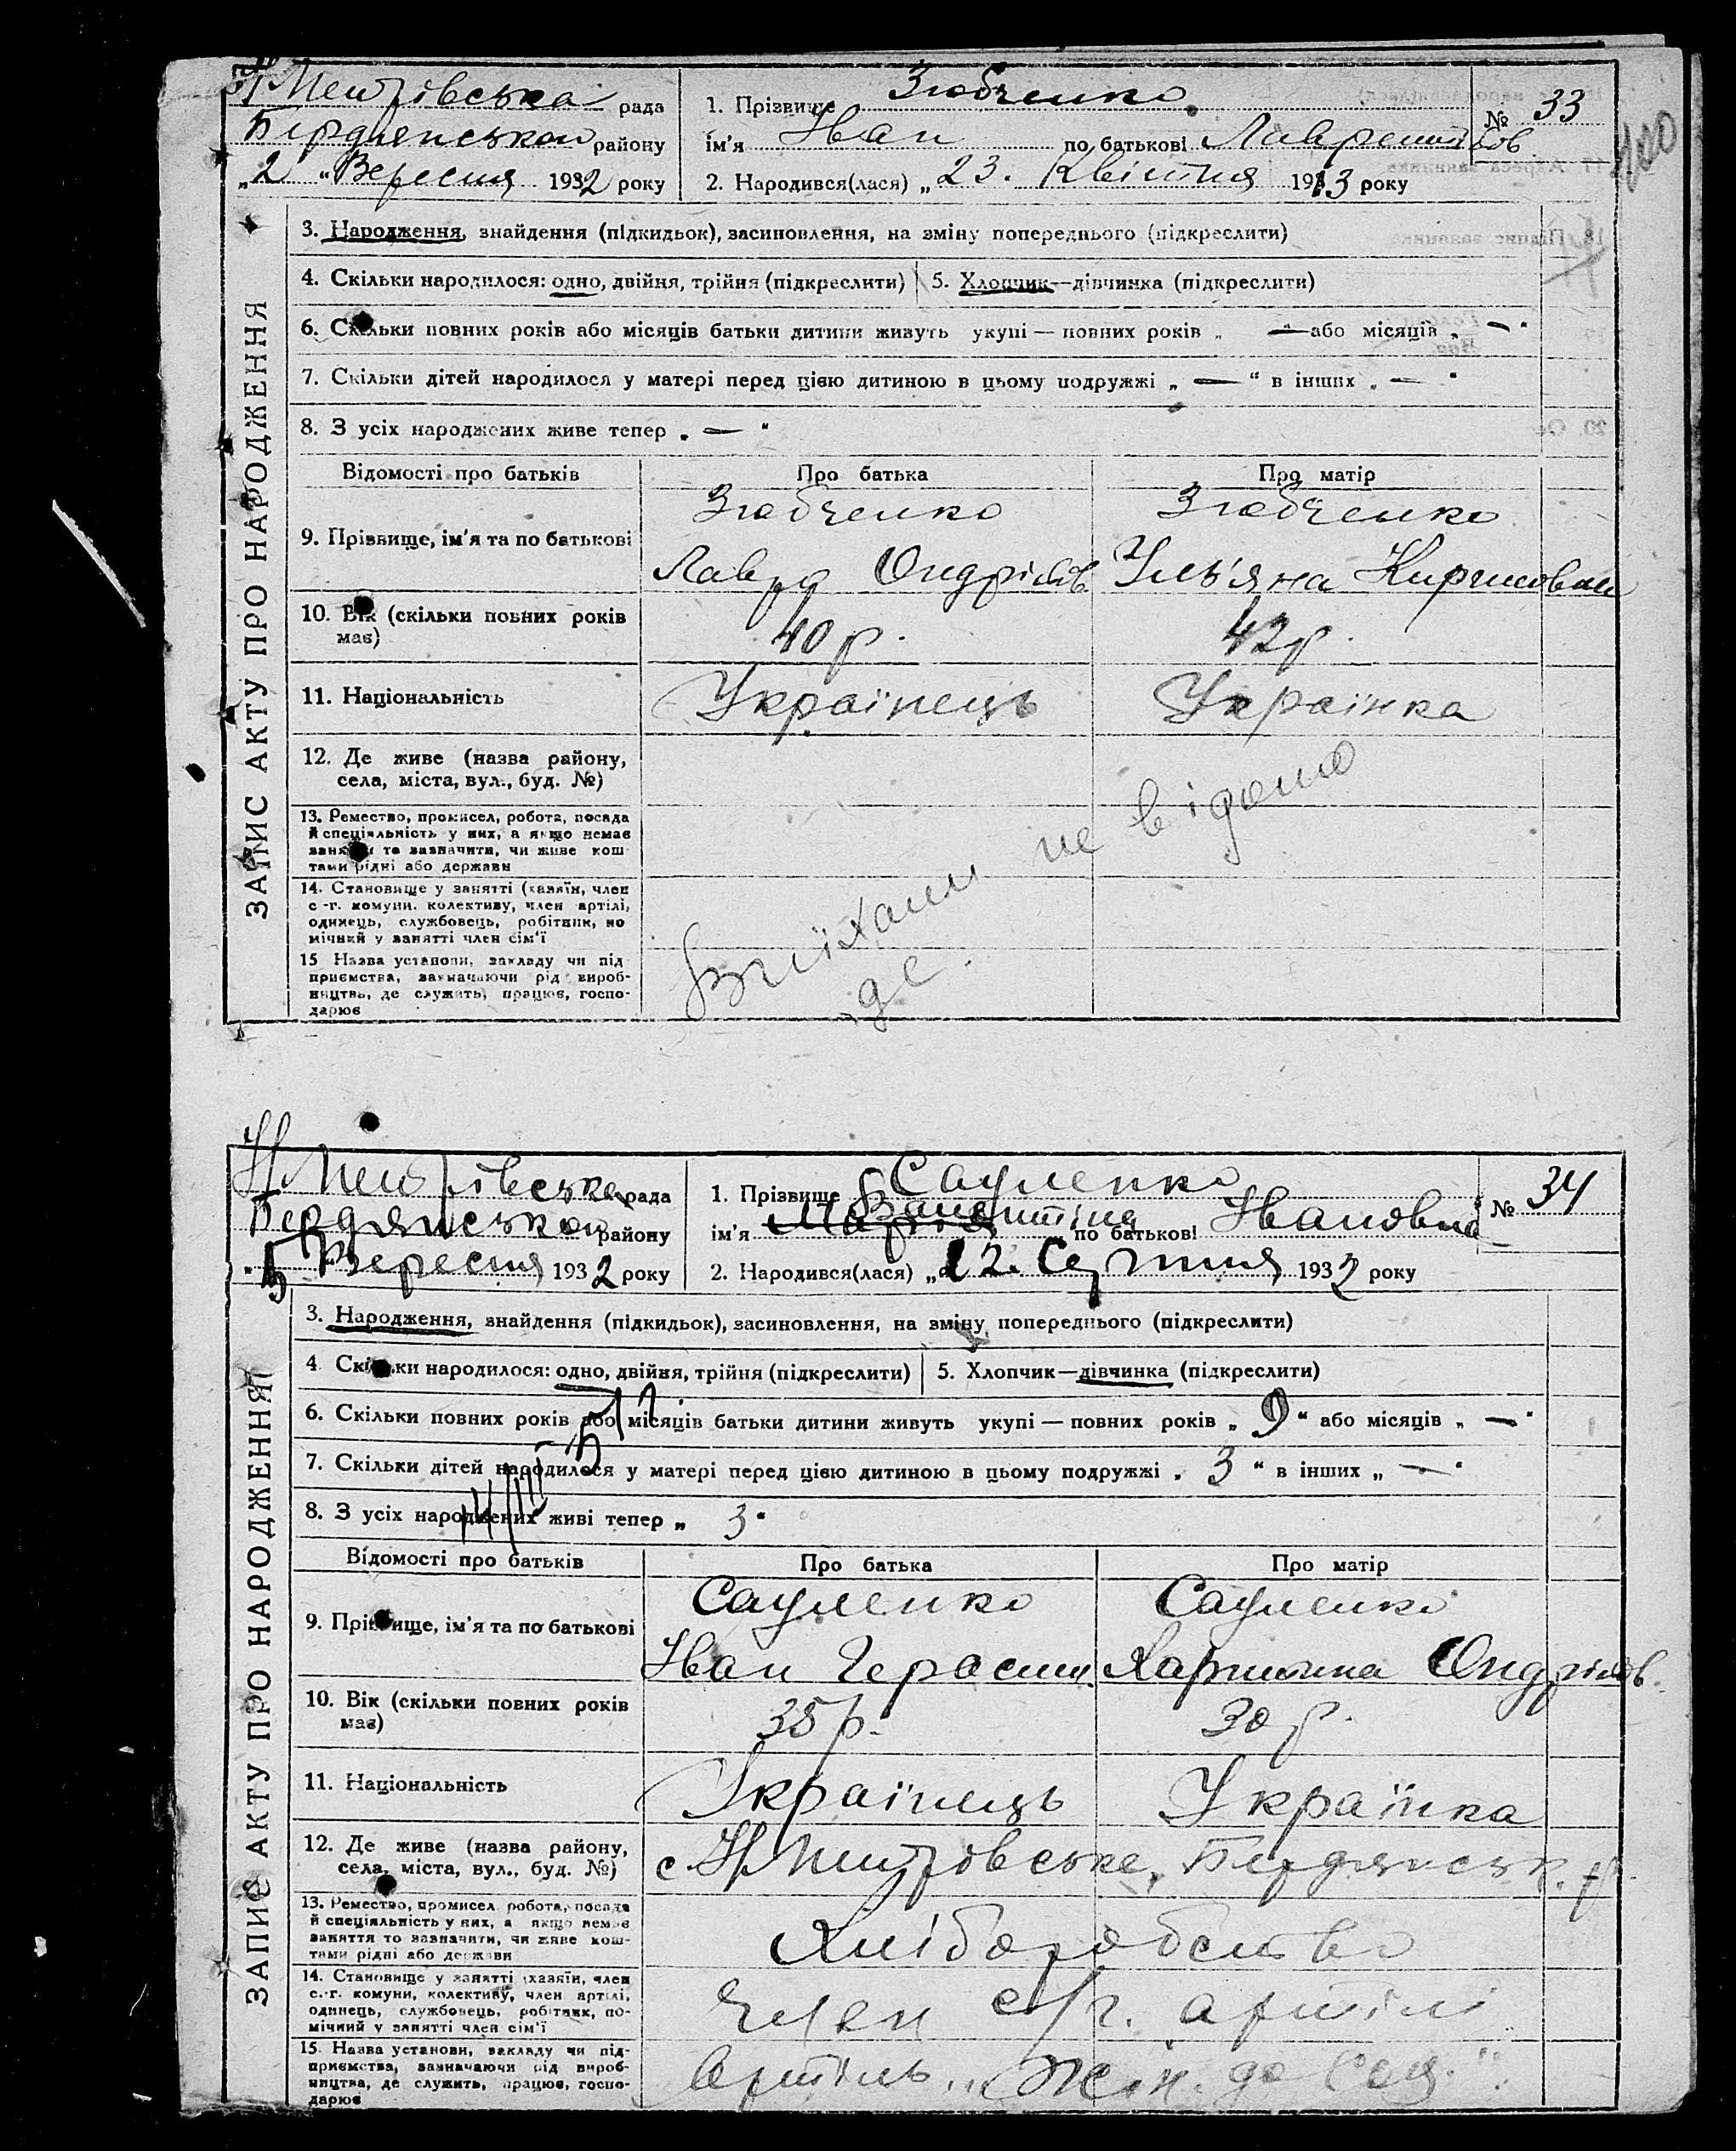 рада
Бердянського району
„2“ Вересня 1932 року
1. Прізвище Злобченко
ім'я Іван по батькові Лаврентіїов
2. Народився(лася) „23. Квітня 1913 року
№ 33
ЗАПИС АКТУ ПРО НАРОДЖЕННЯ
3. Народження, знайдення (підкидьок), засиновлення, на зміну попереднього (підкреслити)
4. Скільки народилося: одно, двійня, трійня (підкреслити)
5. Хлопчик—дівчинка (підкреслити)
6. Скільки повних років або місяців батьки дитини живуть укупі — повних років „ —“ або місяців „ — “
7. Скільки дітей народилося у матері перед цією дитиною в цьому подружжі „ — “ в інших „ — “
8. З усіх народжених живе тепер „ — “
Відомості про батьків
Про батька
Про матір
9. Прізвище, ім'я та по батькові
Злобченко
Злобченко
10. Вік (скільки повних років має)
40 р.
42 р.
11. Національність
Українець
Українка
12. Де живе (назва району,
села, міста, вул., буд. №)
13. Ремество, промисел, робота, посада
й спеціяльність у них, а якщо немає
заняття то зазначити, чи живе кош-
тами рідні або держави
14. Становище у занятті (хазяїн, член
с.-г. комуни, колективу, член артілі,
одинець, службовець, робітник, по
мічний у занятті член сім'ї
15 Назва установи, закладу чи під
приємства, зазначаючи рід вироб-
ництва, де служить, працює, госпо-
дарює
Виїхали не відомо
де.
рада
Бердянського району
„5“ Вересня 1932 року
1. Прізвище Сауленко
ім'я Валентіна по батькові Івановна
2. Народився(лася) „12. Серпня 1932 року
№ 34
ЗАПИС АКТУ ПРО НАРОДЖЕННЯ
3. Народження, знайдення (підкидьок), засиновлення, на зміну попереднього (підкреслити)
4 Скільки народилося: одно, двійня, трійня (підкреслити)
5. Хлопчик—дівчинка (підкреслити)
6. Скільки повних років або місяців батьки дитини живуть укупі — повних років „ 9 “ або місяців „ — “
7. Скільки дітей народилося у матері перед цією дитиною в цьому подружжі „ 3 “ в інших „ — “
8. З усіх народжених живі тепер „ 3 “
Відомості про батьків
Про батька
Про матір
9. Прізвище, ім'я та по батькові
Сауленко
Сауленко
Іван Герасим.
10. Вік (скільки повних років має)
35 р.
30 р.
11. Національність
Українець
Українка
12. Де живе (назва району,
села, міста, вул., буд. №)
Бердянськ. р.
13. Ремество, промисел, робота, посада
й спеціяльність у них, а якщо немає
заняття то зазначити, чи живе кош-
тами рідні або держави
Хліборобство
14. Становище у занятті (хазяїн, член
с.-г. комуни, колективу, член артілі,
одинець, службовець, робітник, по-
мічний у занятті член сім'ї
Член с/г. артілі
15. Назва установи, закладу чи під-
приємства, зазначаючи рід вироб-
ництва, де служить, працює, госпо-
дарює
Артіль